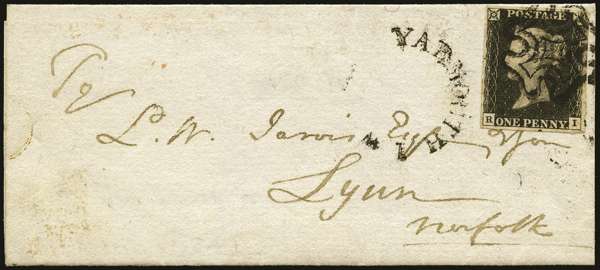 POSTAGE
R ONE PENNY I
YARMOUTH
To
L. W. Jarvis Esq
Lynn
Norfolk